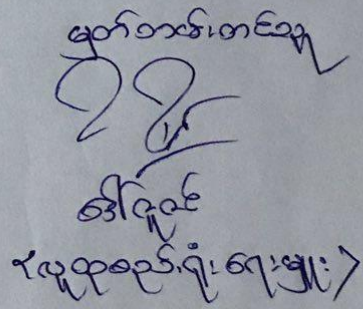 မှတ်တမ်းတင်သူ
ဒေါ်လူလင်း
(လူထုစည်းရုံးရေးမှူး)